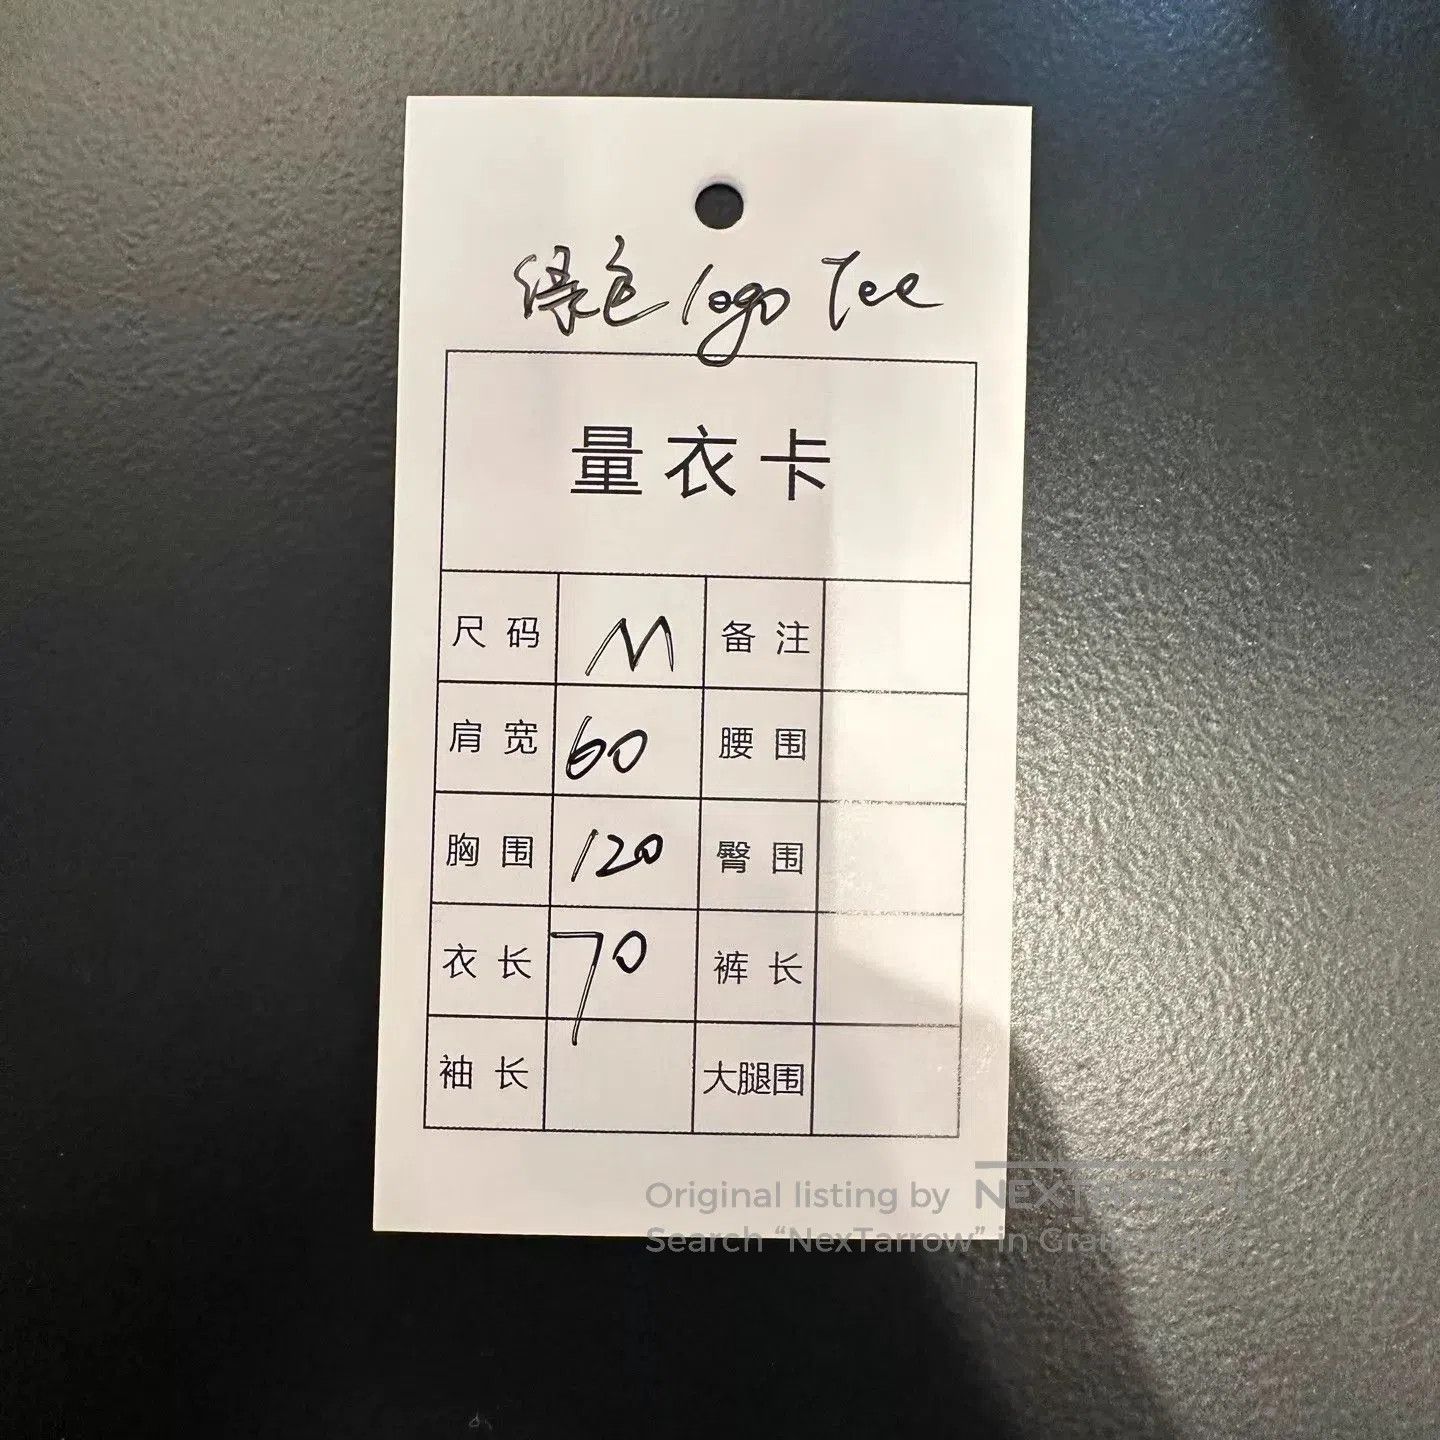 绿色 logo Tee
量衣卡
尺码 M 备注
肩宽 60 腰围
胸围 120 臀围
衣长 70 裤长
袖长 大腿围
Original listing by NEXTARROW
Search “NexTarrow” in